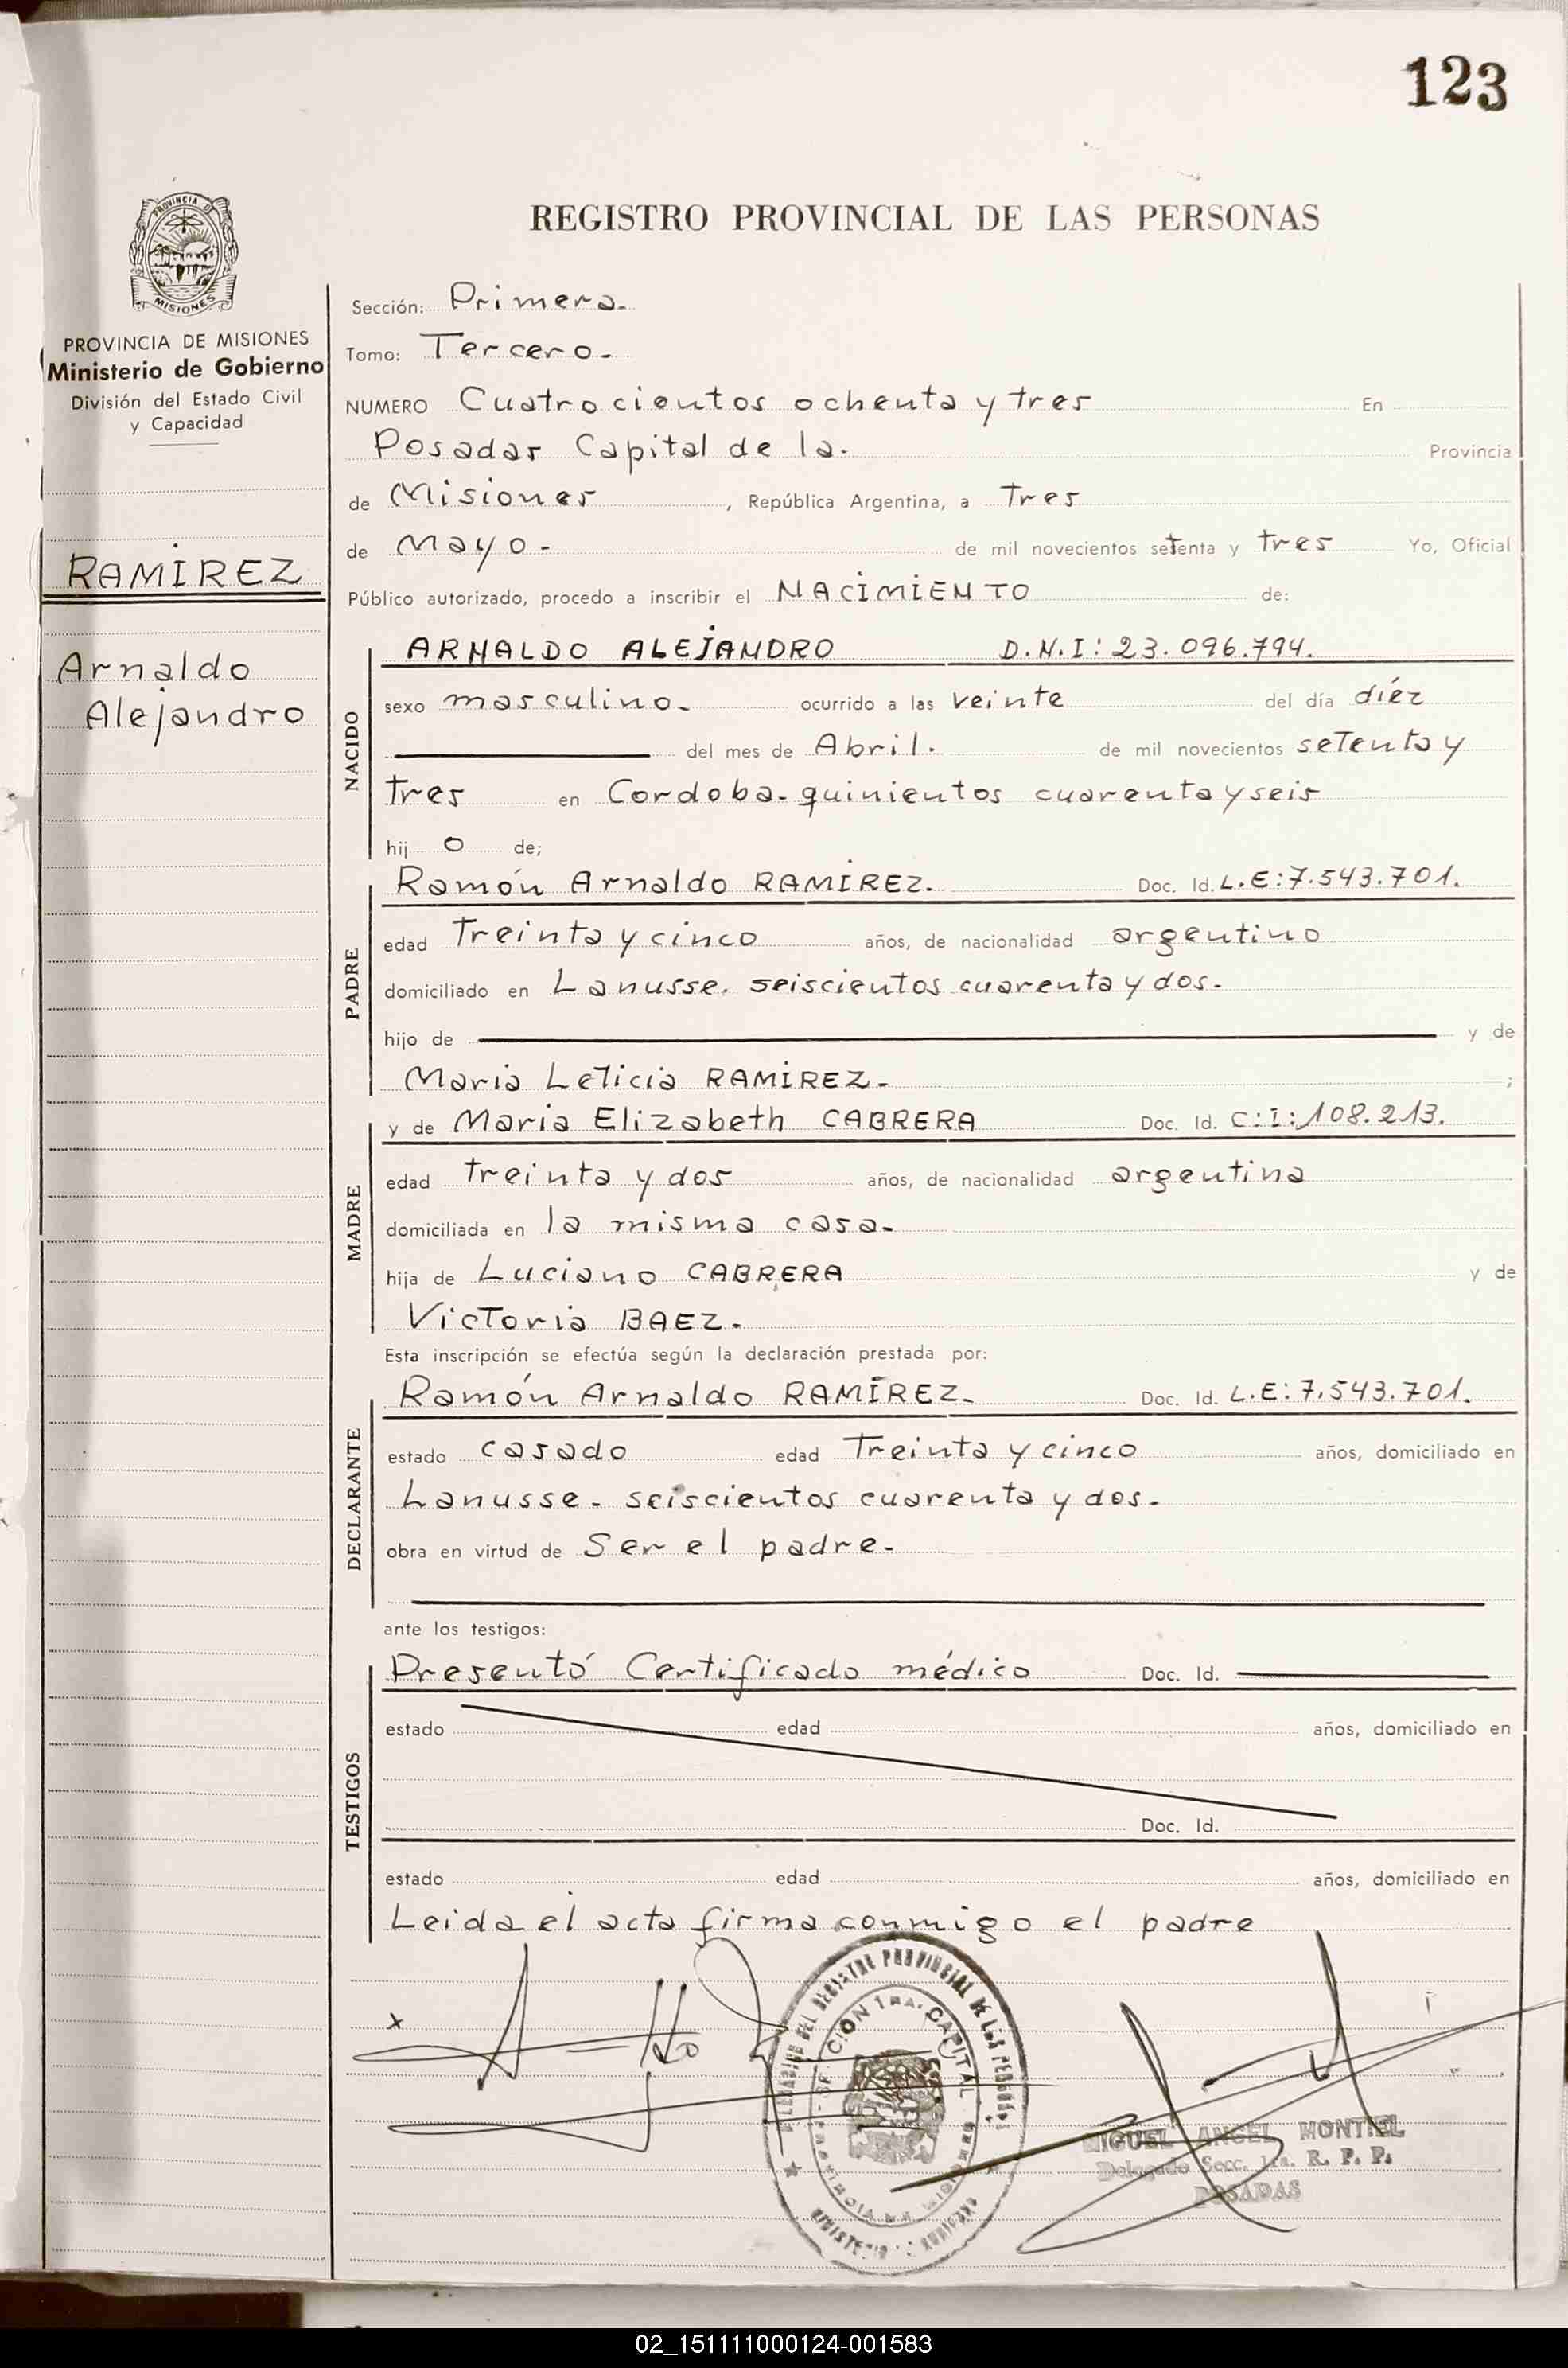 123
PROVINCIA DE
MISIONES
PROVINCIA DE MISIONES
Ministerio de Gobierno
División del Estado Civil
y Capacidad
RAMIREZ
Arnaldo
Alejandro
REGISTRO PROVINCIAL DE LAS PERSONAS
Sección: Primera.
Tomo: Tercero.
NUMERO Cuatrocientos ochenta y tres En
Posadas Capital de la. Provincia
de Misiones, República Argentina, a Tres
de Mayo. de mil novecientos setenta y tres Yo, Oficial
Público autorizado, procedo a inscribir el NACIMIENTO de:
NACIDO
ARNALDO ALEJANDRO D.N.I: 23.096.794.
sexo masculino. ocurrido a las veinte del día diéz
del mes de Abril. de mil novecientos setenta y
tres en Cordoba. quinientos cuarenta y seis
hij o de;
PADRE
Ramón Arnaldo RAMIREZ. Doc. Id. L.E: 7.543.701.
edad Treinta y cinco años, de nacionalidad argentino
domiciliado en Lanusse. seiscientos cuarenta y dos.
hijo de y de
Maria Leticia RAMIREZ. ;
MADRE
y de Maria Elizabeth CABRERA Doc. Id. C:I: 108.213.
edad treinta y dos años, de nacionalidad argentina
domiciliada en la misma casa.
hija de Luciano CABRERA y de
Victoria BAEZ.
Esta inscripción se efectúa según la declaración prestada por:
DECLARANTE
Ramón Arnaldo RAMÍREZ. Doc. Id. L.E: 7.543.701.
estado casado edad Treinta y cinco años, domiciliado en
Lanusse. seiscientos cuarenta y dos.
obra en virtud de Ser el padre.
ante los testigos:
TESTIGOS
Presentó Certificado médico Doc. Id.
estado edad años, domiciliado en
Doc. Id.
estado edad años, domiciliado en
Leida el acta firma conmigo el padre
x
DEL REGISTRO PROVINCIAL DE LAS PERSONAS
SECCION 1RA. CAPITAL
PROVINCIA DE
MIGUEL ANGEL MONTIEL
Delegado Secc. 1ra. R. P. P.
POSADAS
02_151111000124-001583